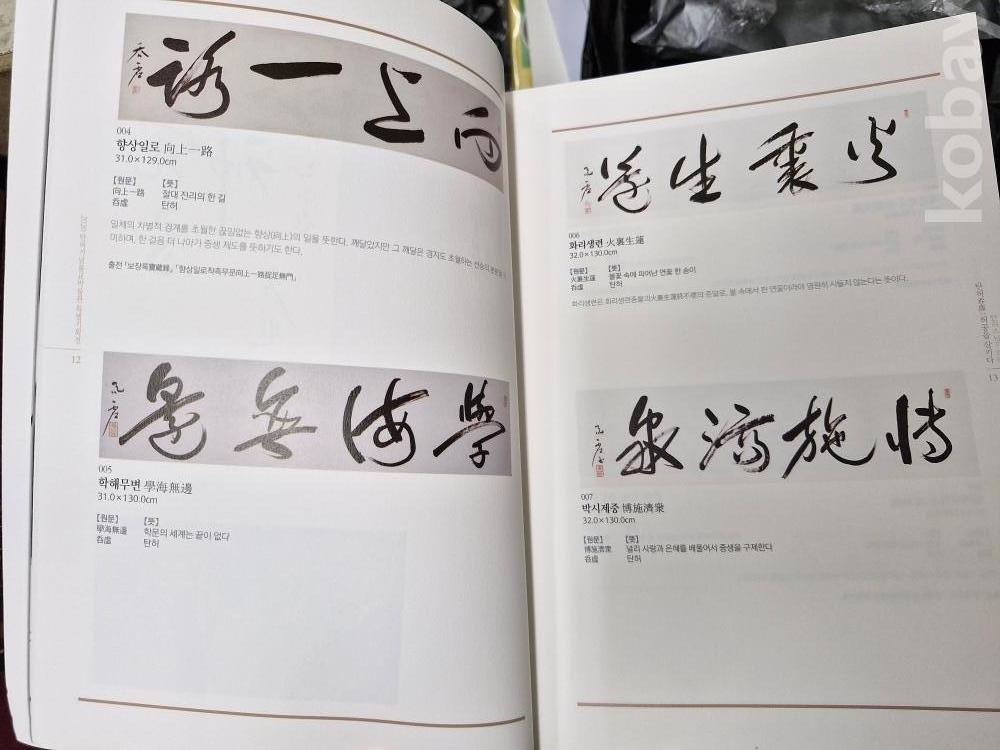 路一上向
呑虛
004
향상일로 向上一路
31.0×129.0cm
【원문】 【뜻】
向上一路 절대 진리의 한 길
呑虛 탄허
일체의 차별적 경계를 초월한 끊임없는 향상(向上)의 일을 뜻한다. 깨달았지만 그 깨달은 경지도 초월하는
미하며, 한 걸음 더 나아가 중생 제도를 뜻하기도 한다.
출전 「보장록寶藏錄」「향상일로착족무문向上一路捉足無門」
12
邊無海學
呑虛
005
학해무변 學海無邊
31.0×130.0cm
【원문】 【뜻】
學海無邊 학문의 세계는 끝이 없다
呑虛 탄허
蓮生裏火
呑虛
006
화리생련 火裏生蓮
31.0×130.0cm
【원문】 【뜻】
火裏生蓮 불꽃 속에 피어난 연꽃 한 송이
呑虛 탄허
화리생련은 화리생련종불괴火裏生蓮終不壞의 준말로, 불 속에서 핀 연꽃이라야 영원히 시들지 않는다는 뜻이다.
13
衆濟施博
呑虛
007
박시제중 博施濟衆
32.0×130.0cm
【원문】 【뜻】
博施濟衆 널리 사랑과 은혜를 베풀어서 중생을 구제한다
呑虛 탄허
kobay